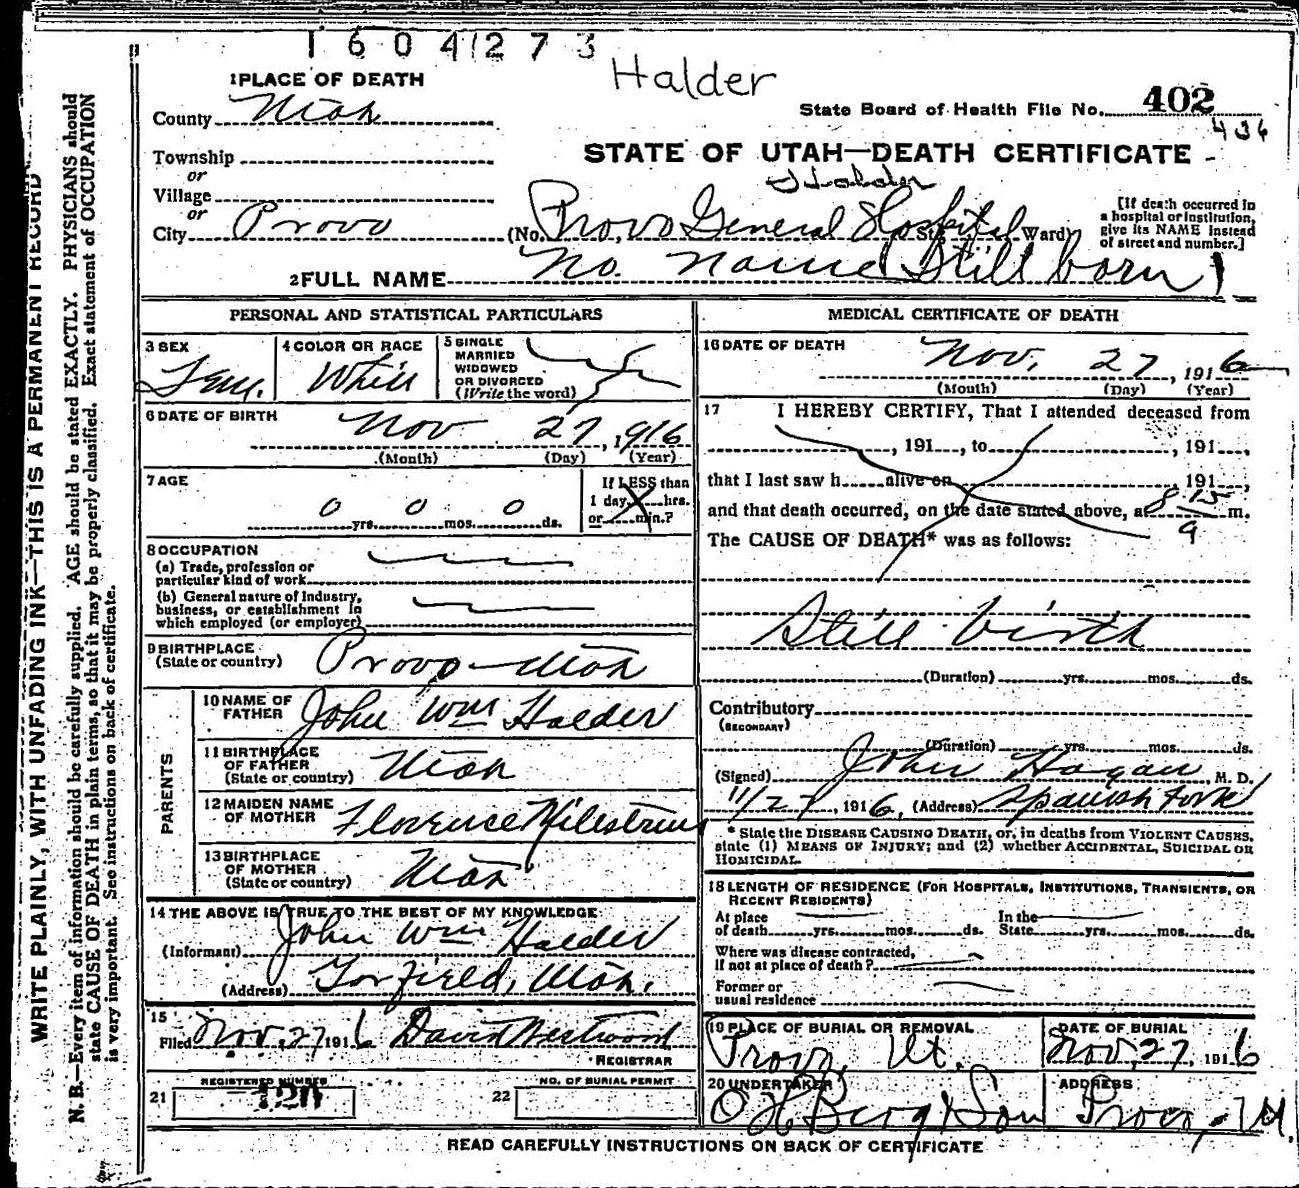 1604273
Halder
1 PLACE OF DEATH
State Board of Health File No. 402
County Utah
436
Township
STATE OF UTAH—DEATH CERTIFICATE
or
Village
Halder
or
City Provo (No. Provo General Hospital St., Ward)
[If death occurred in
a hospital or institution,
give its NAME instead
of street and number.]
2 FULL NAME No. name Still born
PERSONAL AND STATISTICAL PARTICULARS
3 SEX Fem.
4 COLOR OR RACE White
5 SINGLE
MARRIED
WIDOWED
OR DIVORCED
(Write the word)
6 DATE OF BIRTH Nov 27, 1916
(Month) (Day) (Year)
7 AGE
0 yrs. 0 mos. 0 ds.
If LESS than
1 day, hrs.
or min.?
8 OCCUPATION
(a) Trade, profession or
particular kind of work
(b) General nature of Industry,
business, or establishment in
which employed (or employer)
9 BIRTHPLACE
(State or country) Provo Utah
PARENTS
10 NAME OF
FATHER John Wm Halder
11 BIRTHPLACE
OF FATHER
(State or country) Utah
12 MAIDEN NAME
OF MOTHER Florence
13 BIRTHPLACE
OF MOTHER
(State or country) Utah
14 THE ABOVE IS TRUE TO THE BEST OF MY KNOWLEDGE
(Informant) John Wm Halder
(Address) Utah.
15
Filed Nov. 27 1916 David Westwood
REGISTRAR
REGISTERED NUMBER
21 120
NO. OF BURIAL PERMIT
22
MEDICAL CERTIFICATE OF DEATH
16 DATE OF DEATH
Nov. 27, 1916
(Month) (Day) (Year)
17 I HEREBY CERTIFY, That I attended deceased from
, 191 , to , 191 ,
that I last saw h alive on , 191 ,
and that death occurred, on the date stated above, at 8 15 m.
9
The CAUSE OF DEATH* was as follows:
Still birth
(Duration) yrs. mos. ds.
Contributory
(SECONDARY)
(Duration) yrs. mos. ds.
(Signed) John Hagan, M. D.
11/27, 1916, (Address) Spanish Fork
* State the DISEASE CAUSING DEATH, or, in deaths from VIOLENT CAUSES,
state (1) MEANS OF INJURY; and (2) whether ACCIDENTAL, SUICIDAL OR
HOMICIDAL.
18 LENGTH OF RESIDENCE (FOR HOSPITALS, INSTITUTIONS, TRANSIENTS, OR
RECENT RESIDENTS)
At place In the
of death yrs. mos. ds. State yrs. mos. ds.
Where was disease contracted,
if not at place of death?
Former or
usual residence
19 PLACE OF BURIAL OR REMOVAL
Provo, Ut.
DATE OF BURIAL
Nov. 27, 1916
20 UNDERTAKER
O H Berg & Son
ADDRESS
Provo, Ut.
READ CAREFULLY INSTRUCTIONS ON BACK OF CERTIFICATE
WRITE PLAINLY, WITH UNFADING INK—THIS IS A PERMANENT RECORD
N. B.—Every item of information should be carefully supplied. AGE should be stated EXACTLY. PHYSICIANS should
state CAUSE OF DEATH in plain terms, so that it may be properly classified. Exact statement of OCCUPATION
is very important. See instructions on back of certificate.